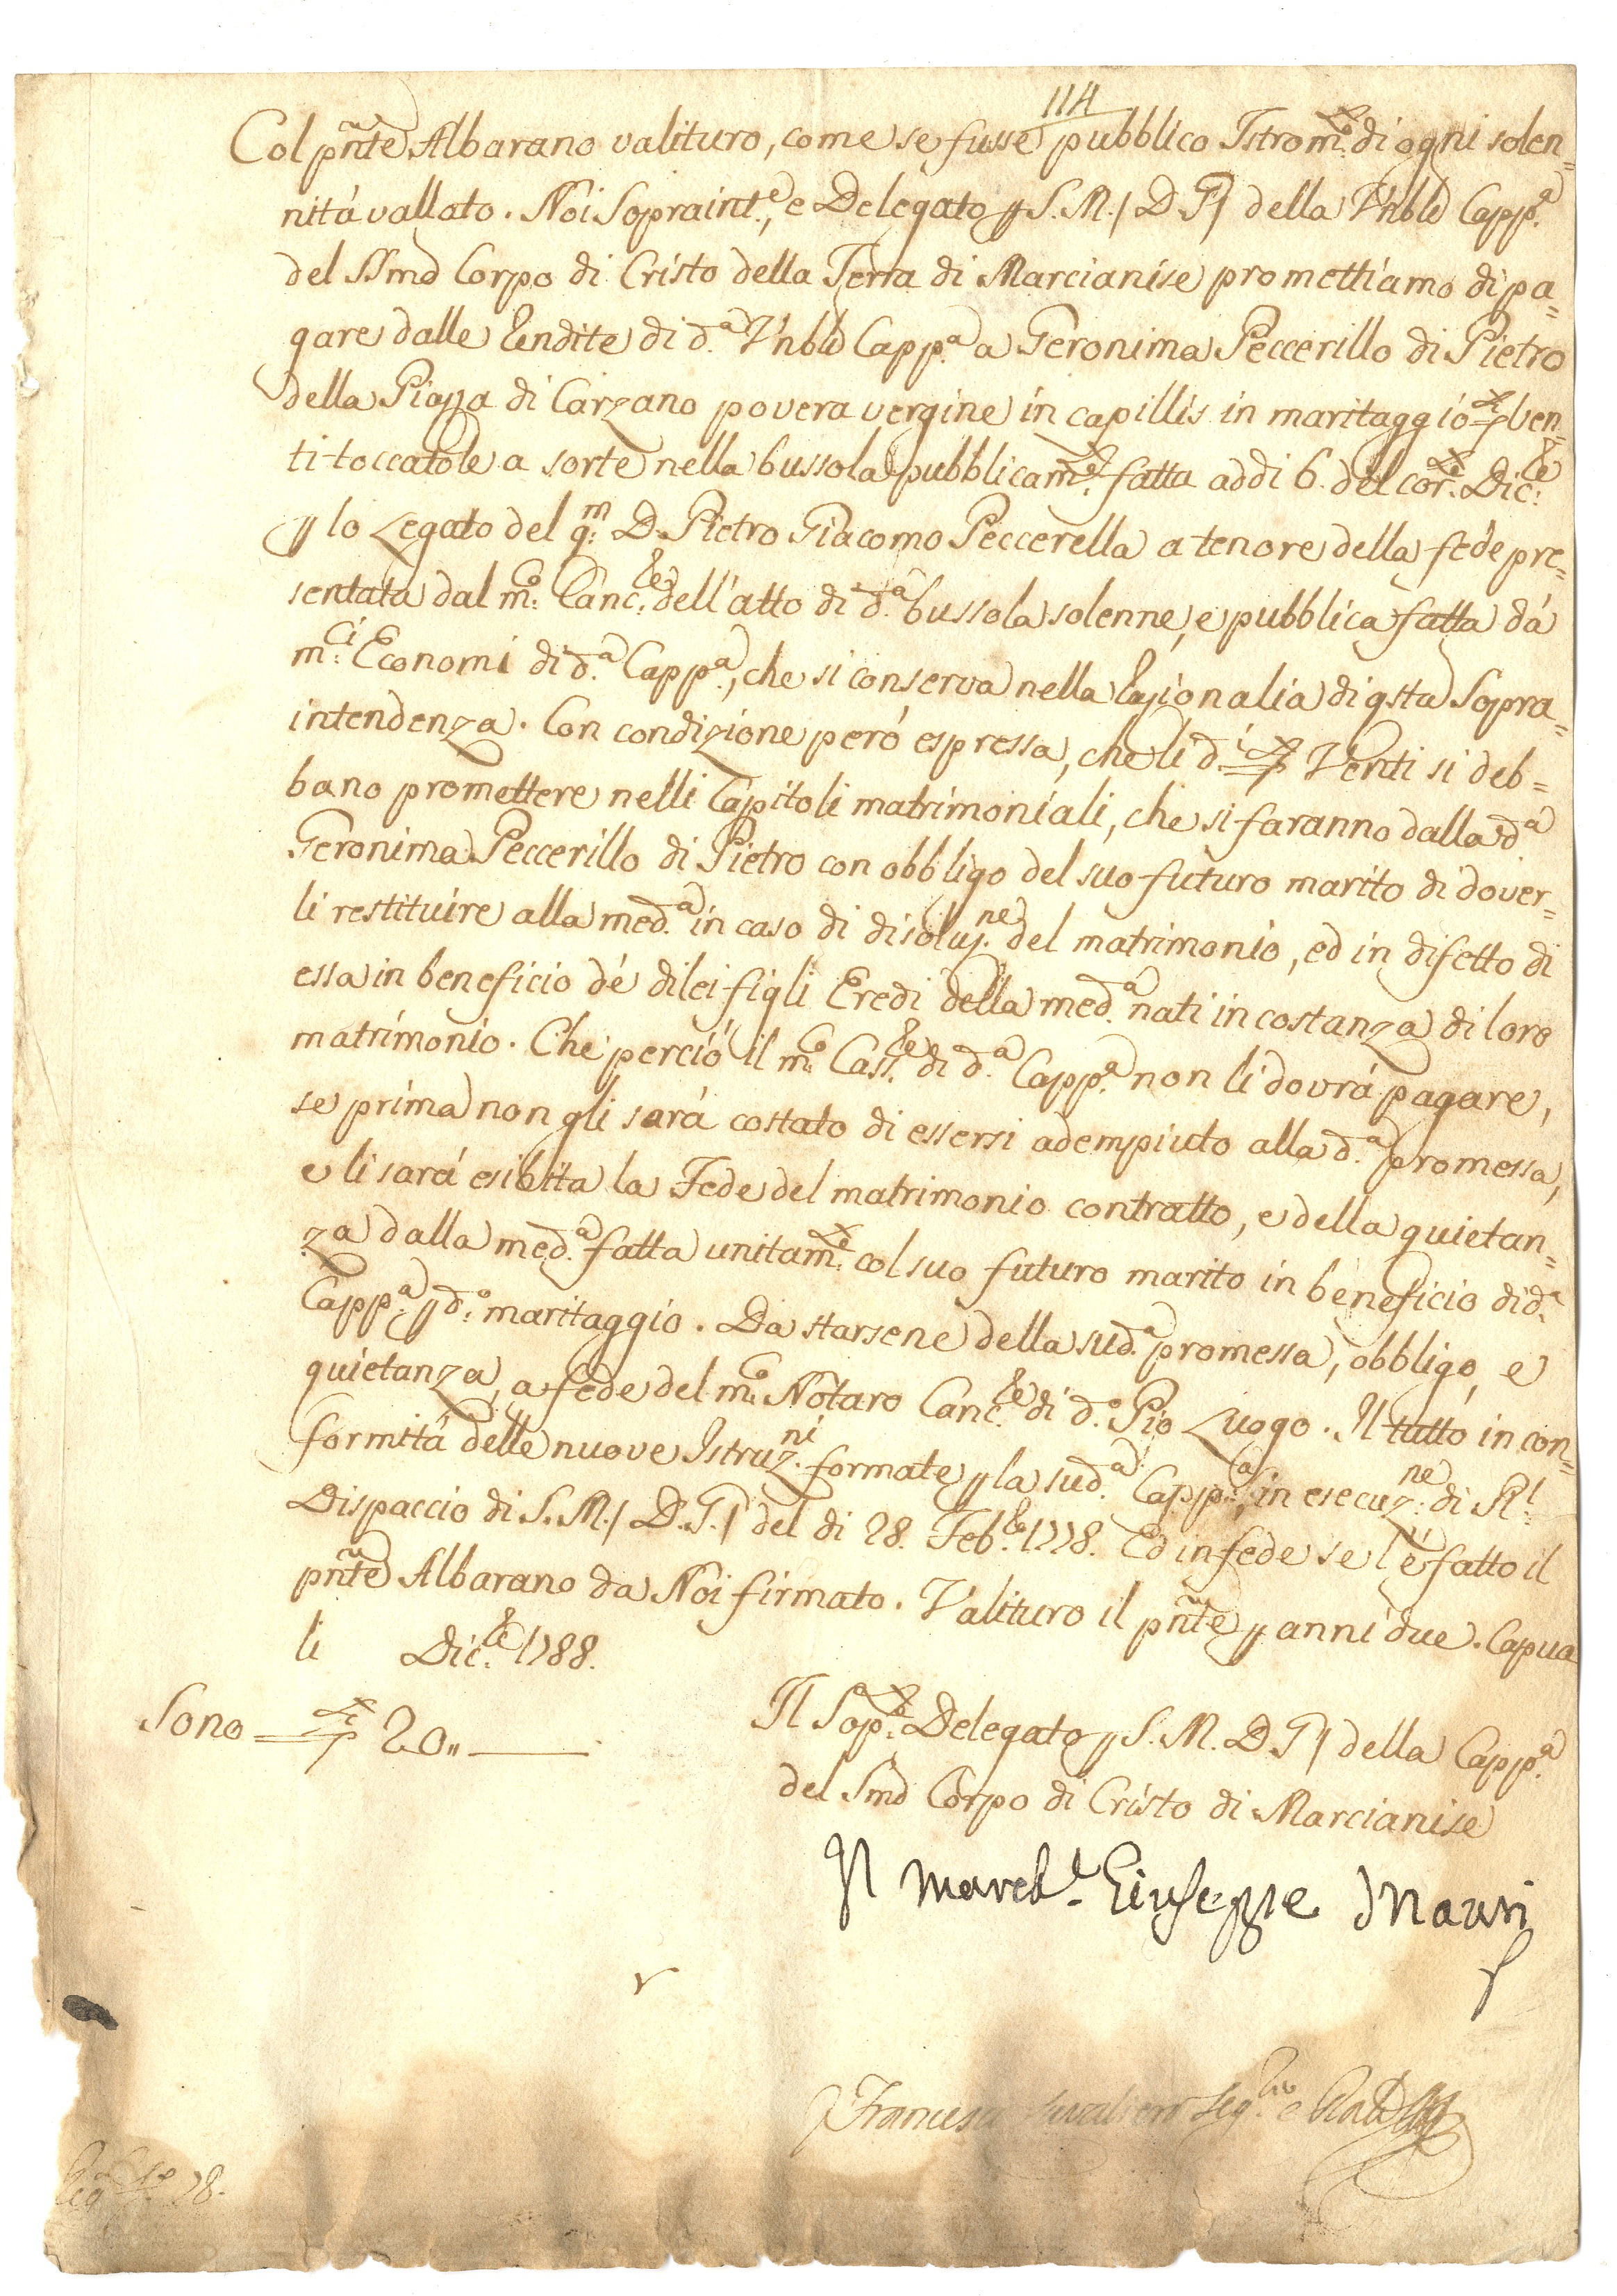 114
Col pñte Albarano valituro, come se fusse pubblico Istrom.to di ogni solen=
nità vallato. Noi Sopraint.e, e Delegato p S. M. / D. G / della Vnble Capp.a
del SSmo Corpo di Cristo della Terra di Marcianise promettiamo di pa=
gare dalle Rendite di d.a Vnble Capp.a a Geronima Peccerillo di Pietro
della Piazza di Carzano povera vergine in capillis in maritaggio D.ti ven=
ti toccatole a sorte nella bussola pubblicam.te fatta addi 6. del cor.te Dic.re
p lo Legato del q.m D. Pietro Giacomo Peccerella a tenore della fede pre=
sentata dal m.co Canc.re dell'atto di d.a bussola solenne, e pubblica fatta dà
m.ci Economi di d.a Capp.a, che si conserva nella Razionalia di qsta Sopra=
intendenza. Con condizione però espressa, che li d.i D.ti Venti si deb=
bano promettere nelli Capitoli matrimoniali, che si faranno dalla d.a
Geronima Peccerillo di Pietro con obbligo del suo futuro marito di dover=
li restituire alla med.a in caso di disoluz.ne del matrimonio, ed in difetto di
essa in beneficio dè di lei figli Eredi della med.a nati in costanza di loro
matrimonio. Che perciò il m.co Cass.re di d.a Capp.a non li dovrà pagare,
se prima non gli sarà costato di essersi adempiuto alla d.a promessa,
e li sarà esibita la Fede del matrimonio contratto, e della quietan=
za dalla med.a fatta unitam.te col suo futuro marito in beneficio di d.a
Capp.a p d.o maritaggio. Da starsene della sud.a promessa, obbligo, e
quietanza, a fede del m.co Notaro Canc.re di d.o Pio Luogo. Il tutto in con=
formità delle nuove Istruz.ni formate p la sud.a Capp.a, in esecuz.ne di R.l
Dispaccio di S. M. / D. G. / del di 28. Feb.ro 1778. Ed in fede se l'è fatto il
pñte Albarano da Noi firmato. Valituro il pñte p anni due. Capua
li Dic.re 1788.
Sono D.ti 20..
Il Sop.te Delegato p S. M. D. G / della Capp.a
del Smo Corpo di Cristo di Marcianise
Il March.e Giuseppe Mauri
Francesco Seg.rio e Raz.